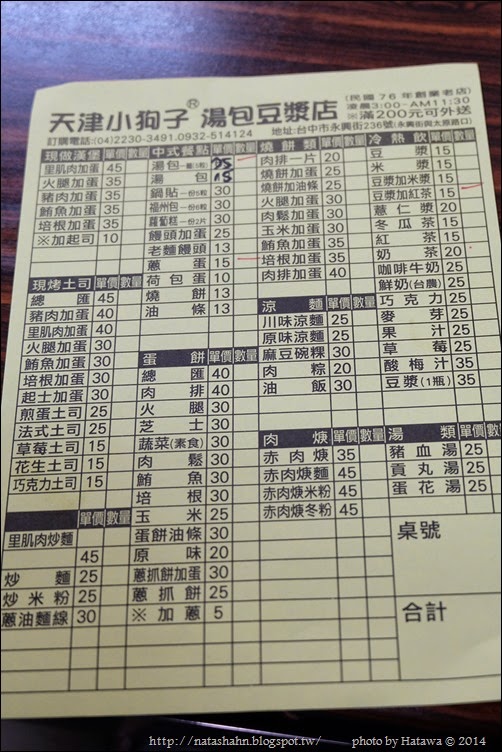 天津小狗子® 湯包豆漿店
(民國76年創業老店)
凌晨3:00-AM11:30
※滿200元可外送
訂購電話:(04)2230-3491.0932-514124 地址:台中市永興街236號(永興街與太原路口)
現做漢堡 單價 數量
里肌肉加蛋 45
火腿加蛋 35
豬肉加蛋 35
鮪魚加蛋 35
培根加蛋 35
※加起司 10
現烤土司 單價 數量
總匯 45
豬肉加蛋 40
里肌加蛋 40
火腿加蛋 30
鮪魚加蛋 30
培根加蛋 30
起士加蛋 30
煎蛋土司 25
法式土司 25
草莓土司 15
花生土司 15
巧克力土司 15
單價 數量
里肌肉炒麵 45
炒麵 25
炒米粉 25
蔥油麵線 30
中式餐點 單價 數量
湯包
湯包 15
鍋貼一份5粒 30
福州包一份6粒 30
蘿蔔糕一份2片 30
饅頭加蛋 25
老麵饅頭 13
蔥蛋 15
荷包蛋 10
燒餅 13
油條 13
蛋餅 單價 數量
總匯 40
肉排 40
火腿 30
芝士 30
蔬菜(素食) 30
肉鬆 30
鮪魚 30
培根 30
玉米 25
蛋餅油條 30
原味 20
蔥抓餅加蛋 30
蔥抓餅 25
※加蔥 5
燒餅類 單價 數量
肉排一片 20
燒餅加蛋 25
燒餅加油條 25
火腿加蛋 30
肉鬆加蛋 30
玉米加蛋 30
鮪魚加蛋 35
培根加蛋 35
肉排加蛋 40
涼麵 單價 數量
川味涼麵 25
原味涼麵 25
麻豆碗粿 30
肉粽 20
油飯 30
肉焿 單價 數量
赤肉焿 35
赤肉焿麵 45
赤肉焿米粉 45
赤肉焿冬粉 45
冷熱飲 單價 數量
豆漿 15
米漿 15
豆漿加米漿 15
豆漿加紅茶 15
薏仁漿 20
冬瓜茶 15
紅茶 15
奶茶 20
咖啡牛奶 25
鮮奶(台農) 25
巧克力 25
麥芽 25
果汁 25
草莓 25
酸梅汁 35
豆漿(1瓶) 35
湯類 單價 數量
豬血湯 25
貢丸湯 25
蛋花湯 25
桌號
合計
http://natashahn.blogspot.tw/ photo by Hatawa © 2014